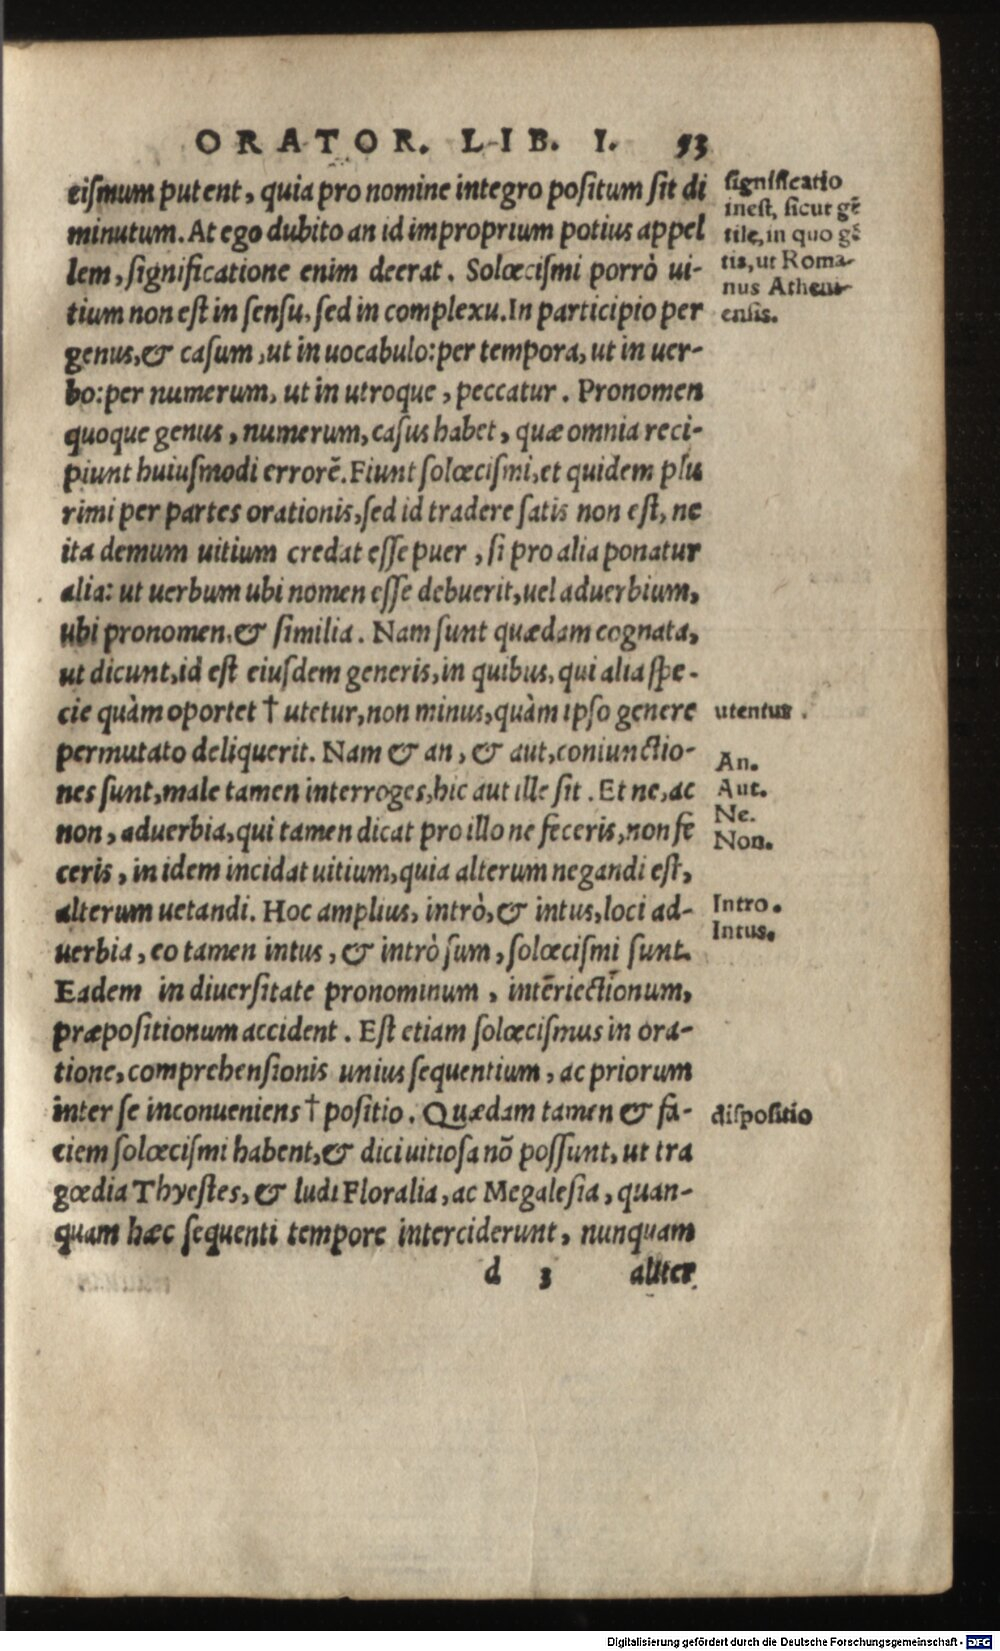 ORATOR. LIB. I. 53
cismum putent, quia pro nomine integro positum sit di
minutum. At ego dubito an id improprium potius appel
lem, significatione enim deerat. Solœcismi porrò ui-
tium non est in sensu, sed in complexu. In participio per
genus, & casum, ut in uocabulo: per tempora, ut in uer-
bo: per numerum, ut in utroque, peccatur. Pronomen
quoque genus, numerum, casus habet, quæ omnia reci-
piunt huiusmodi errorē. Fiunt solœcismi, et quidem plu
rimi per partes orationis, sed id tradere satis non est, ne
ita demum uitium credat esse puer, si pro alia ponatur
alia: ut uerbum ubi nomen esse debuerit, uel aduerbium,
ubi pronomen, & similia. Nam sunt quædam cognata,
ut dicunt, id est eiusdem generis, in quibus, qui alia spe-
cie quàm oportet † utetur, non minus, quàm ipso genere
permutato deliquerit. Nam & an, & aut, coniunctio-
nes sunt, male tamen interroges, hic aut ille sit. Et ne, ac
non, aduerbia, qui tamen dicat pro illo ne feceris, non fe
ceris, in idem incidat uitium, quia alterum negandi est,
alterum uetandi. Hoc amplius, intrò, & intus, loci ad-
uerbia, eo tamen intus, & intrò sum, solœcismi sunt.
Eadem in diuersitate pronominum, intēriectionum,
præpositionum accident. Est etiam solœcismus in ora-
tione, comprehensionis unius sequentium, ac priorum
inter se inconueniens † positio. Quædam tamen & fa-
ciem solœcismi habent, & dici uitiosa nō possunt, ut tra
gœdia Thyestes, & ludi Floralia, ac Megalesia, quan-
quam hæc sequenti tempore interciderunt, nunquam
d 3 aliter
significatio
inest, sicut gē
tile, in quo gē
tis, ut Roma-
nus Atheni-
ensis.
utentur.
An.
Aut.
Ne.
Non.
Intro.
Intus.
dispositio
Digitalisierung gefördert durch die Deutsche Forschungsgemeinschaft - DFG